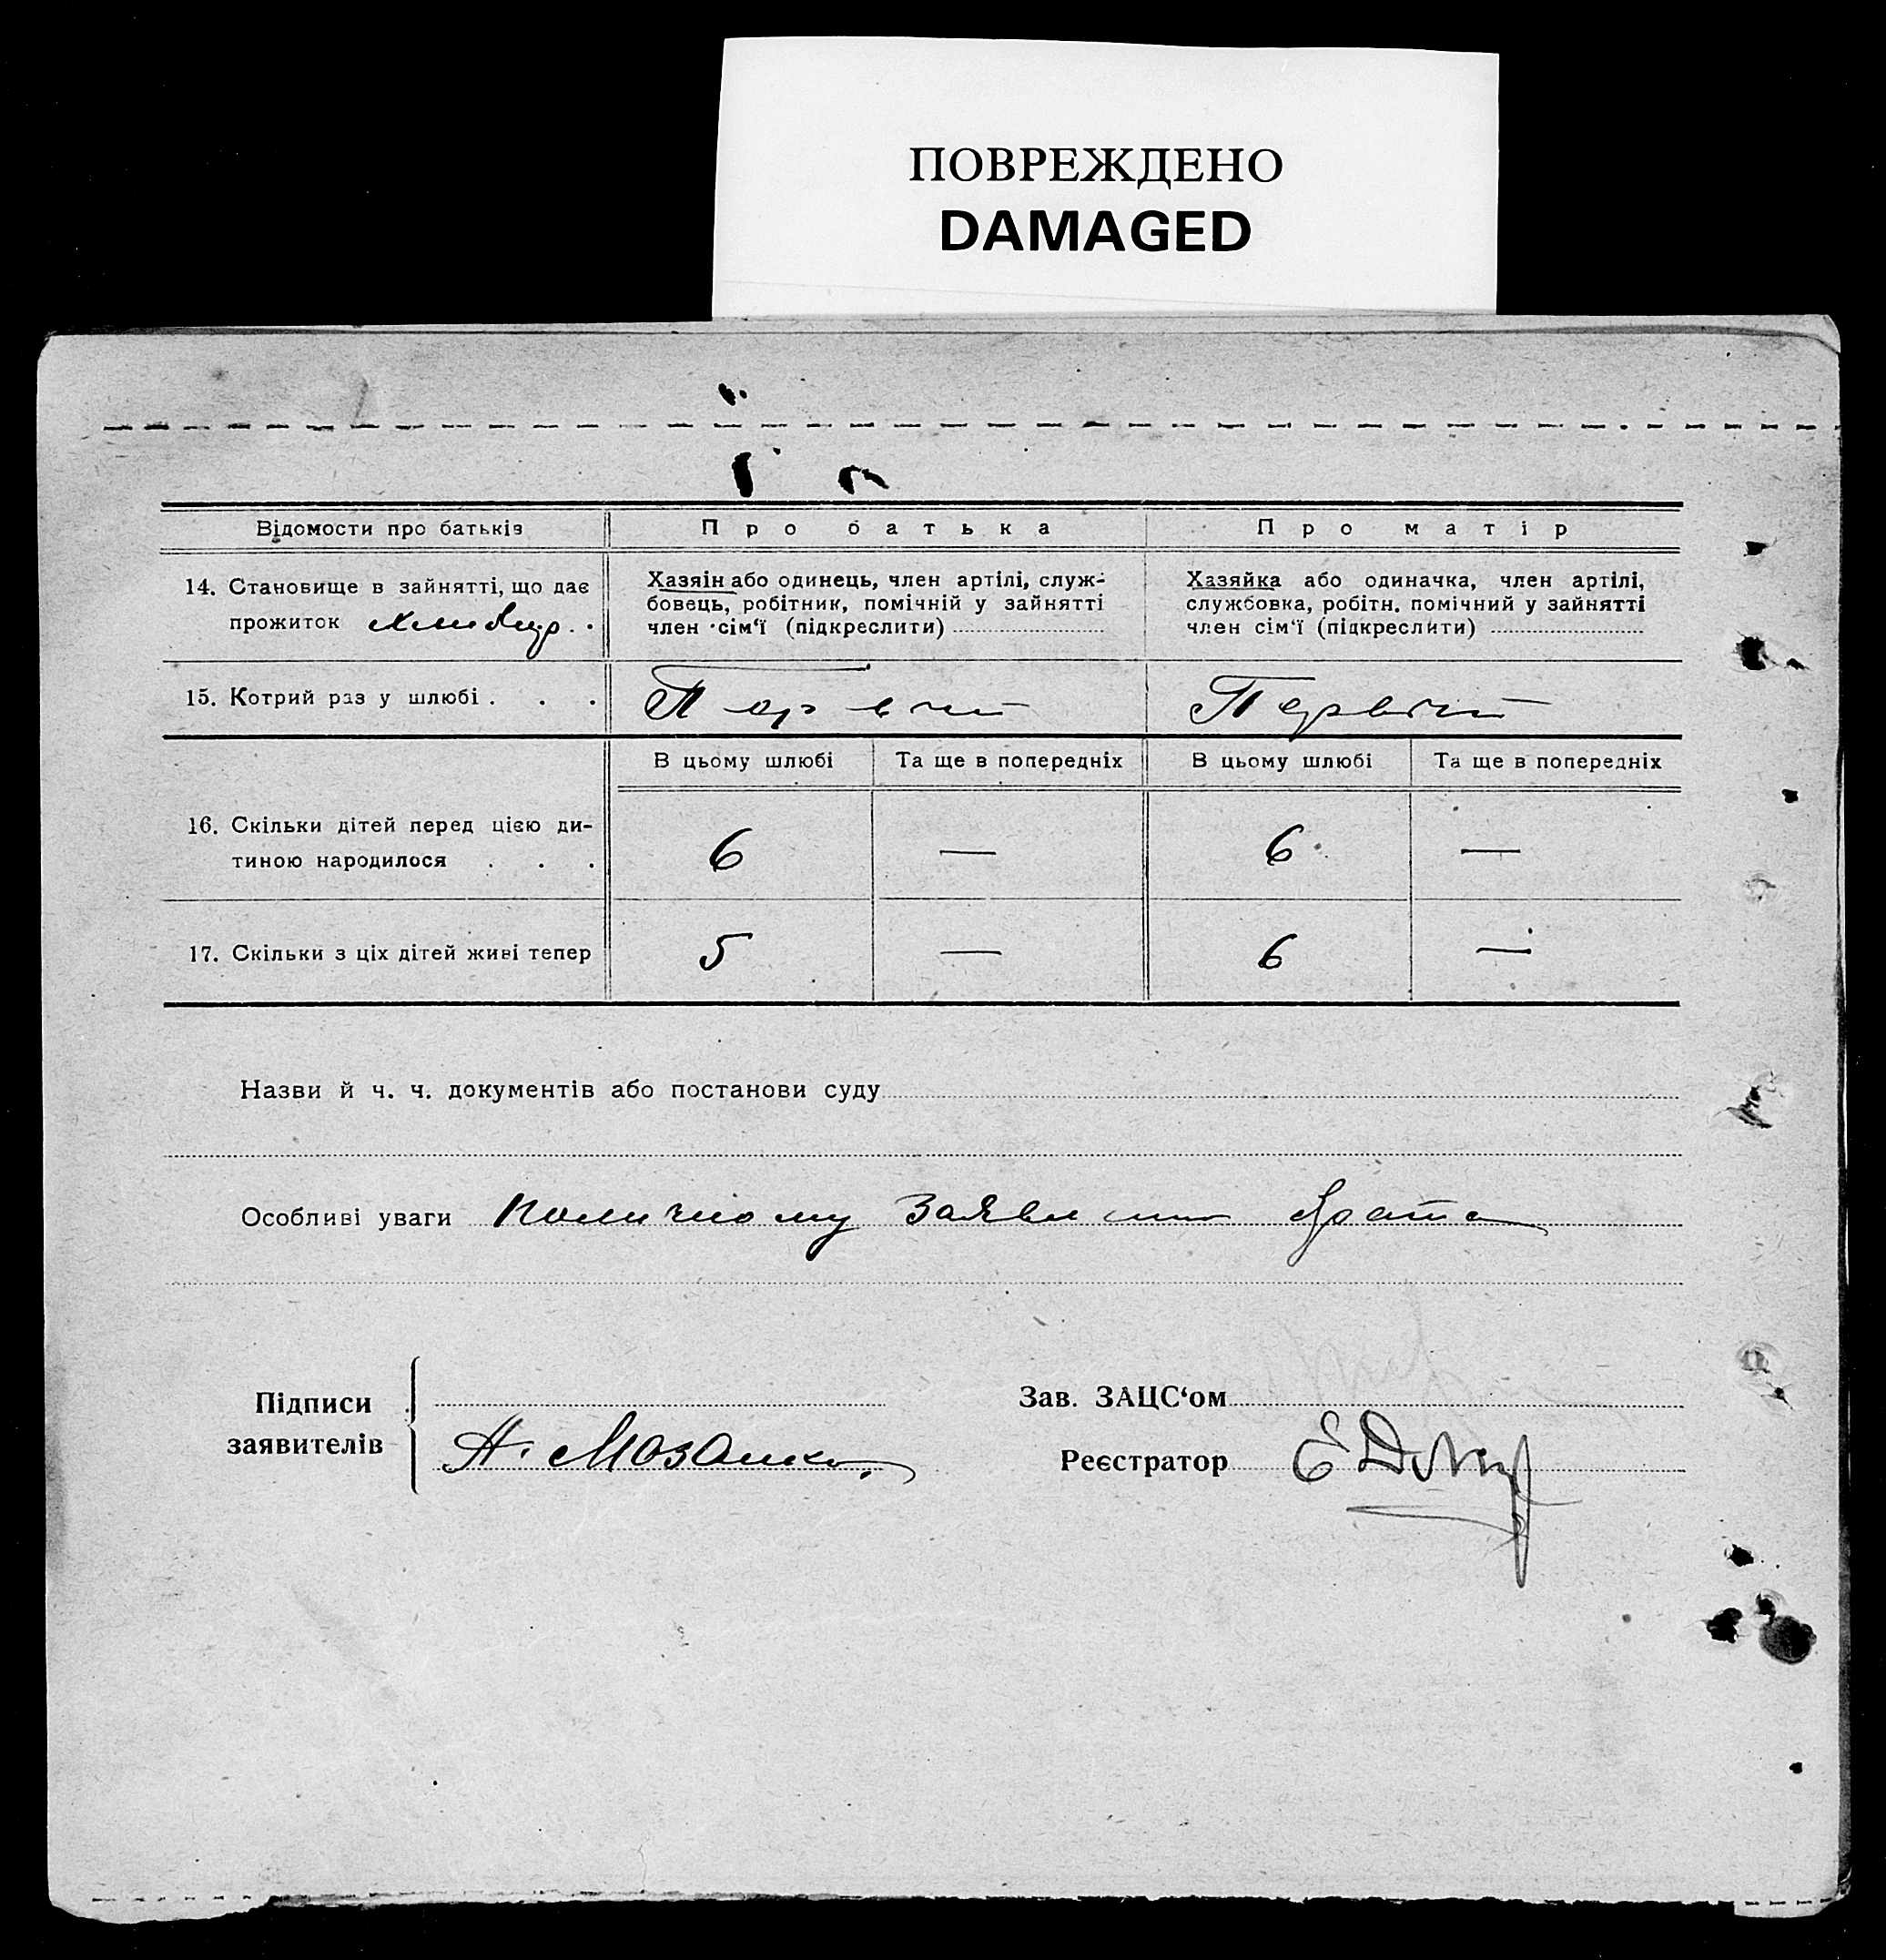 ПОВРЕЖДЕНО
DAMAGED
Відомости про батьків
Про батька
Про матір
14. Становище в зайнятті, що дає
прожиток
Хазяін або одинець, член артілі, служ-
бовець, робітник, помічній у зайнятті
член сім'ї (підкреслити)
Хазяйка або одиначка, член артілі,
службовка, робітн. помічний у зайнятті
член сім'ї (підкреслити)
15. Котрий раз у шлюбі . . .
В цьому шлюбі
Та ще в попередніх
В цьому шлюбі
Та ще в попередніх
16. Скільки дітей перед цією ди-
тиною народилося . . .
6 — 6 —
17. Скільки з ціх дітей живі тепер
5 — 6 —
Назви й ч. ч. документів або постанови суду
Особливі уваги
Підписи
заявителів
А.
Зав. ЗАЦС‘ом
Реєстратор